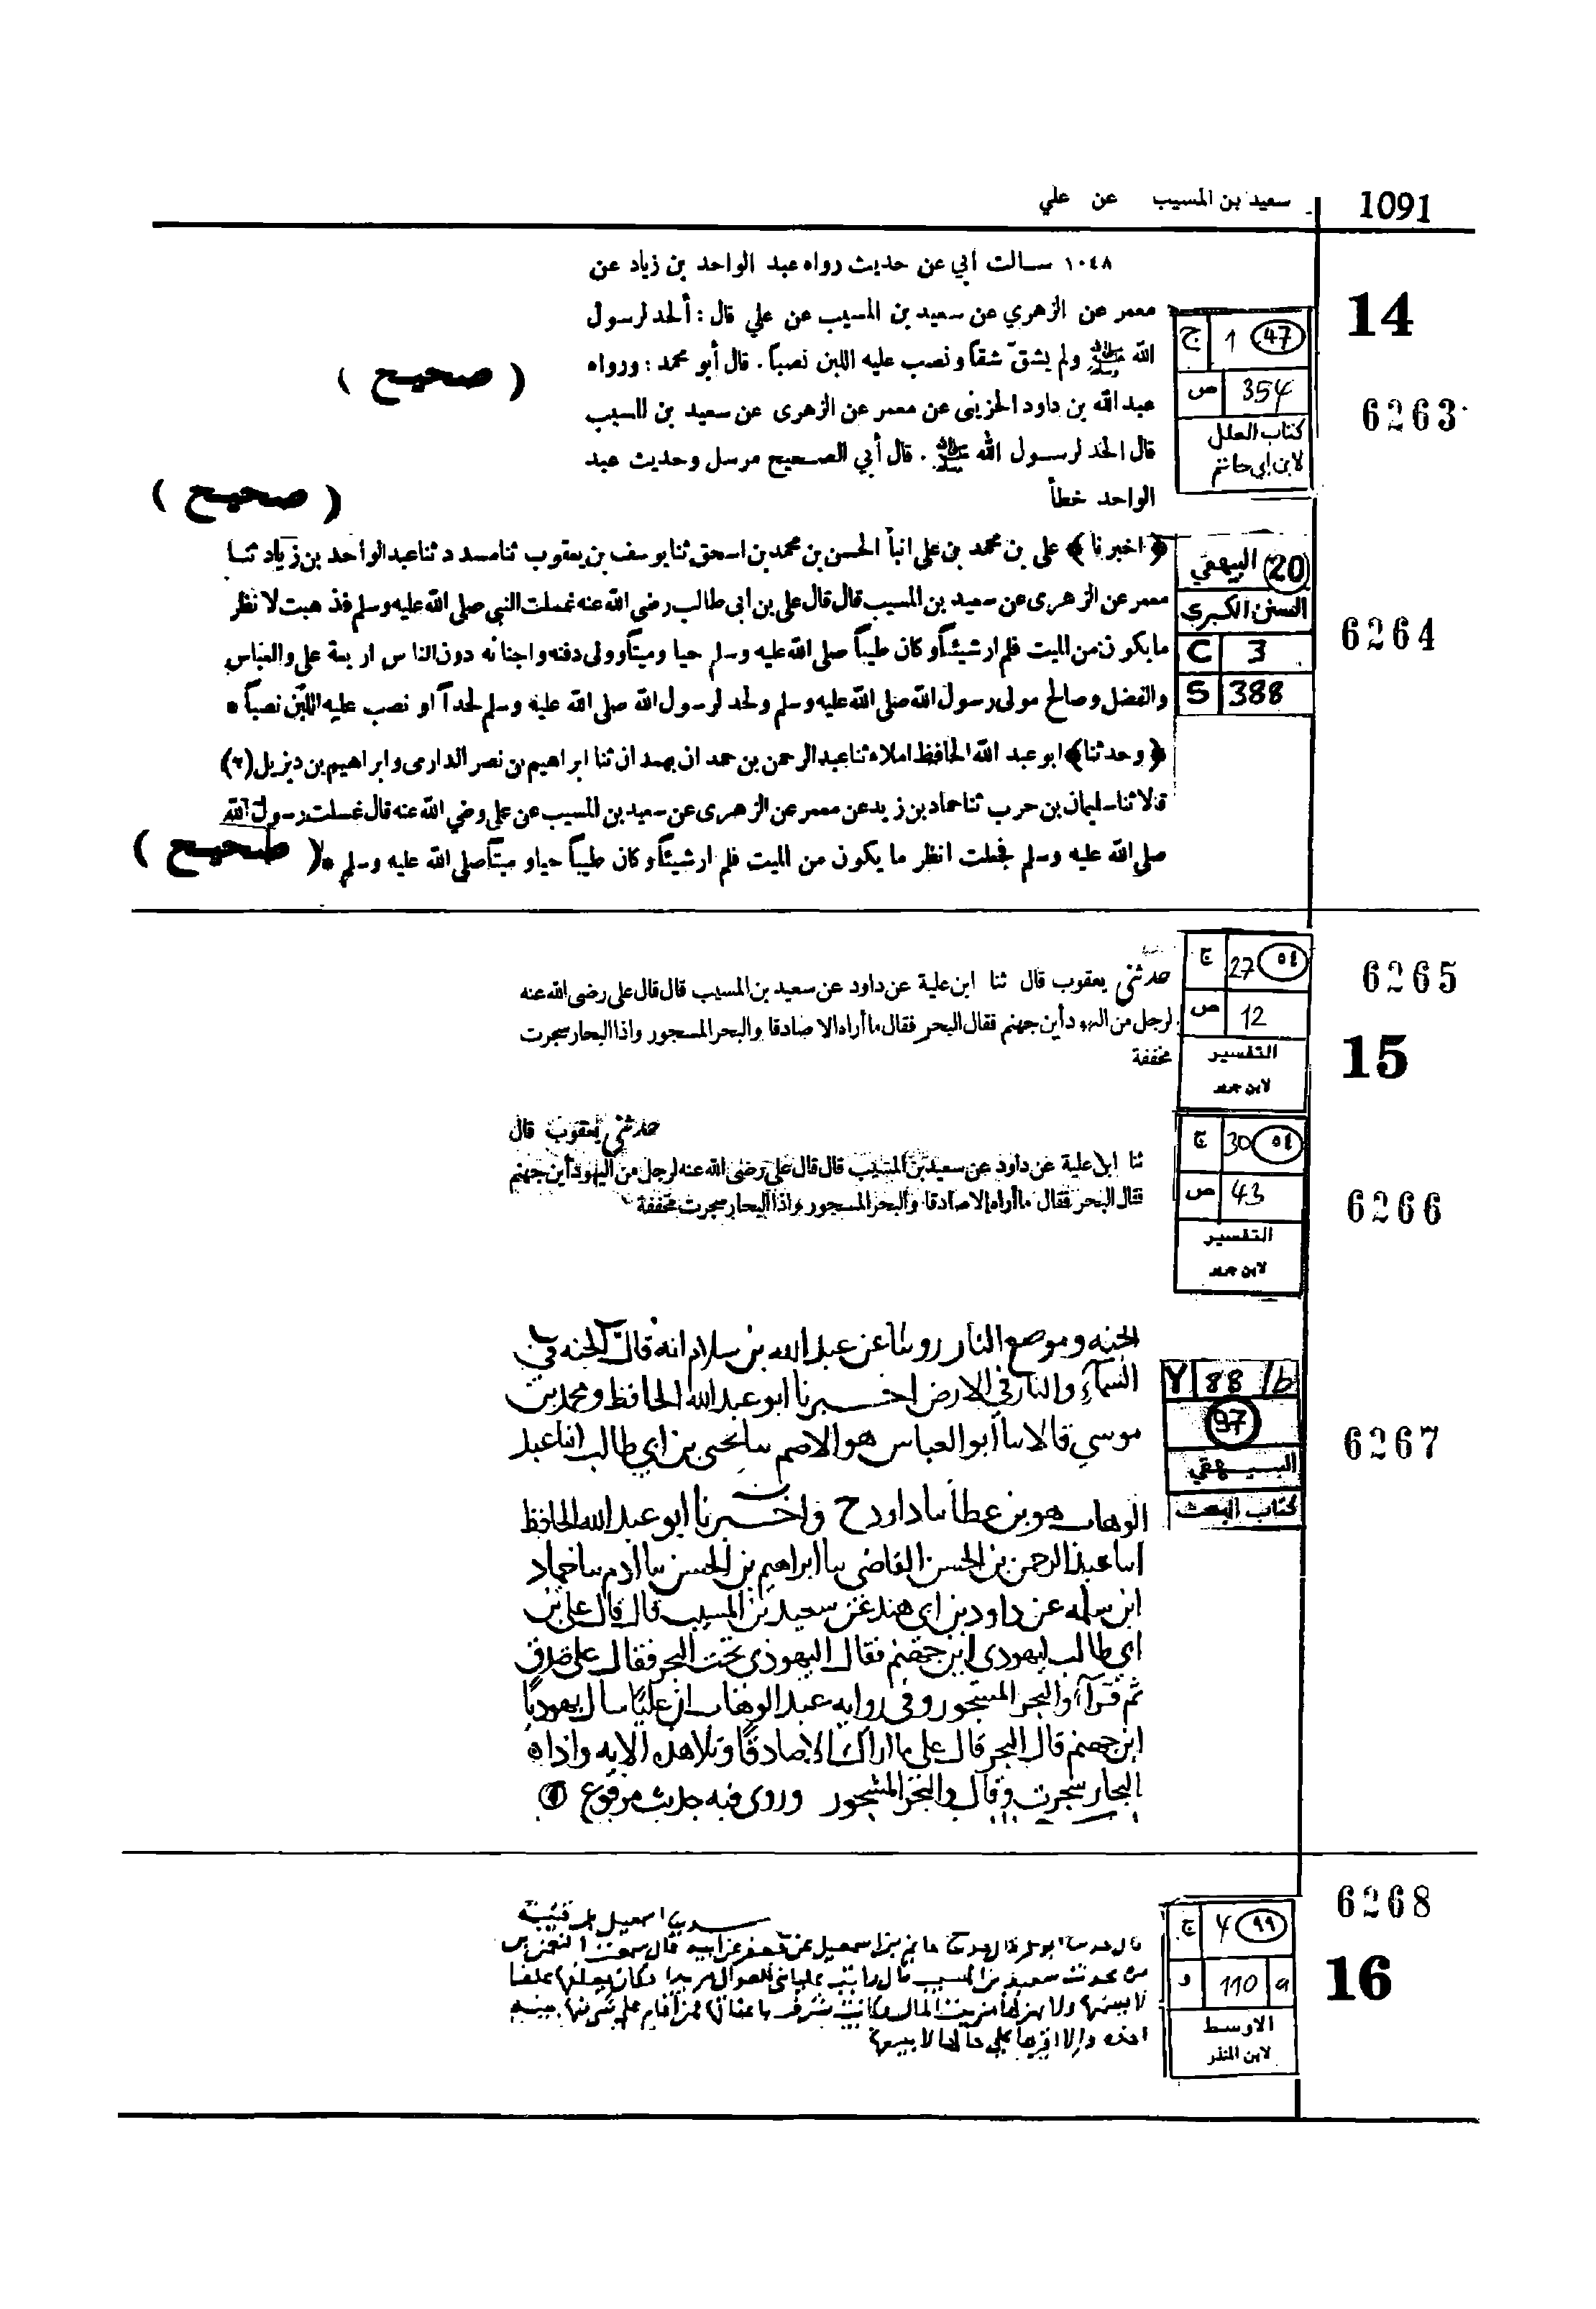 1091
سعيد بن المسيب عن علي
14
6263
ج 1 47
ص 354
كتاب العلل
لابن ابي حاتم
١٠٤٨ سـالت أبي عن حديث رواه عبد الواحد بن زياد عن
معمر عن الزهري عن سعيد بن المسيب عن علي قال : ألحد لرسول
الله ﷺ ولم يشقّ شقاً ونصب عليه اللبن نصباً . قال أبو محمد : ورواه
عبد الله بن داود الخريبى عن معمر عن الزهرى عن سعيد بن المسيب
قال الحد لرسول الله ﷺ . قال أبي الصحيح مرسل وحديث عبد
الواحد خطأ
( صحيح )
( صحيح )
6264
20 البيهقي
السنن الكبرى
C 3
S 388
﴿ اخبرنا ﴾ على بن محمد بن على انبأ الحسن بن محمد بن اسحق ثنا يوسف بن يعقوب ثنا مسدد ثنا عبد الواحد بن زياد ثنا
معمر عن الزهرى عن سعيد بن المسيب قال قال على بن ابى طالب رضى الله عنه غسلت النبي صلى الله عليه وسلم فذهبت لانظر
مايكون من الميت فلم ار شيئاً وكان طيباً صلى الله عليه وسلم حيا وميتاً وولى دفنه واجنانه دون الناس اربعة على والعباس
والفضل وصالح مولى رسول الله صلى الله عليه وسلم ولحد لرسول الله صلى الله عليه وسلم لحداً او نصب عليه اللبن نصباً *
﴿ وحدثنا ﴾ ابو عبد الله الحافظ املاء ثنا عبد الرحمن بن حمدان بهمدان ثنا ابراهيم بن نصر الدارمى وابراهيم بن ديزيل (٢)
قالا ثنا سليمان بن حرب ثنا حماد بن زيد عن معمر عن الزهرى عن سعيد بن المسيب عن على رضي الله عنه قال غسلت رسول الله
صلى الله عليه وسلم فجعلت انظر ما يكون من الميت فلم ار شيئاً وكان طيباً حيا و ميتاً صلى الله عليه وسلم *
( صحيح )
6265
15
ج 27 ٥٤
ص 12
التفسير
لابن جرير
حدثني يعقوب قال ثنا ابن علية عن داود عن سعيد بن المسيب قال قال على رضى الله عنه
لرجل من اليهود أين جهنم فقال البحر فقال ما أراه الا صادقا والبحر المسجور واذا البحار سجرت
مخففة
6266
ج 30 ٥٤
ص 43
التفسير
لابن جرير
حدثني يعقوب قال
ثنا ابن علية عن داود عن سعيد بن المسيب قال قال على رضى الله عنه لرجل من اليهود أين جهنم
فقال البحر فقال ما أراه إلا صادقا والبحر المسجور واذا البحار سجرت مخففة
6267
Y 88 /b
97
البيهقي
كتاب البعث
الجنه وموضع النار روينا عن عبد الله بن سلام انه قال الجنه في
السماء والنار في الارض اخبرنا ابو عبد الله الحافظ ومحمد بن
موسي قالا سا أبو العباس هو الاصم سا يحيى بن ابي طالب انا عبد
الوهاب هو بن عطا سا داود ح واخبرنا ابو عبد الله الحافظ
اسا عبد الرحمن بن الحسن القاضي سا ابراهيم بن الحسن سا ادم سا حماد
ابن سلمه عن داود بن ابي هند عن سعيد بن المسيب قال قال علي بن
ابي طالب ليهودي اين جهنم فقال اليهودي تحت البحر فقال علي صدق
ثم قرأ والبحر المسجور وفي روايه عبد الوهاب ان عليا سال يهوديا
اين جهنم قال البحر قال علي ما اراك الا صادقا وتلا هذه الايه واذا
البحار سجرت وقال والبحر المسجور وروى فيه حديث مرفوع
6268
16
ج 4 ٩٩
و 110 a
الاوسط
لابن المنذر
اسمعيل بن قتيبة
اسمعيل عن جعفر عن ابيه قال سمعت
سعيد بن المسيب قال رايت عليا